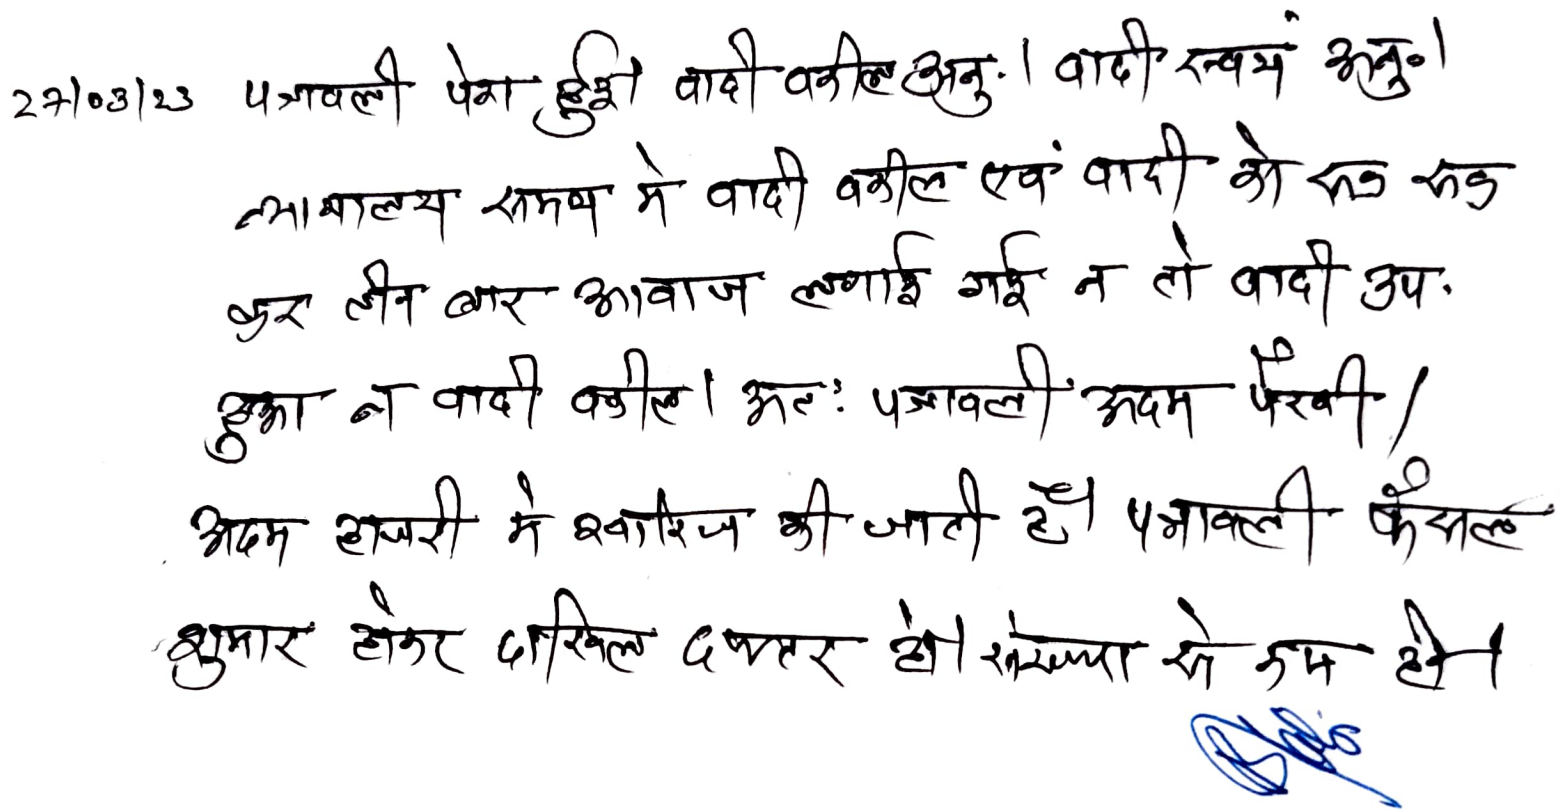 27/03/23 पत्रावली पेश हुई। वादी वकील अनु.। वादी स्वयं अनु॰।
न्यायालय समय मे वादी वकील एवं वादी को रूक रूक
कर तीन बार आवाज लगाई गई न तो वादी उप.
हुआ न वादी वकील। अतः पत्रावली अदम पैरवी/
अदम हाजरी मे खारिज की जाती है। पत्रावली फैसल
शुमार होकर दाखिल दफ्तर हो। संख्या से कम हो।